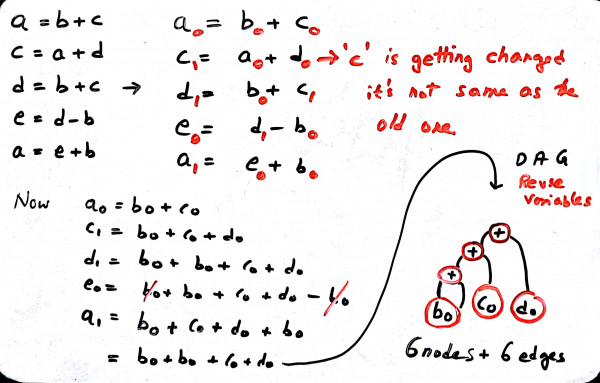 a = b + c
c = a + d
d = b + c →
e = d - b
a = e + b
a₀ = b₀ + c₀
c₁ = a₀ + d₀ → 'c' is getting changed
d₁ = b₀ + c₁ it's not same as the
e₀ = d₁ - b₀ old one
a₁ = e₀ + b₀
Now a₀ = b₀ + c₀
c₁ = b₀ + c₀ + d₀
d₁ = b₀ + b₀ + c₀ + d₀
e₀ = b₀ + b₀ + c₀ + d₀ - b₀
a₁ = b₀ + c₀ + d₀ + b₀
= b₀ + b₀ + c₀ + d₀
DAG
Reuse
variables
+
+
+
b₀ c₀ d₀
6 nodes + 6 edges